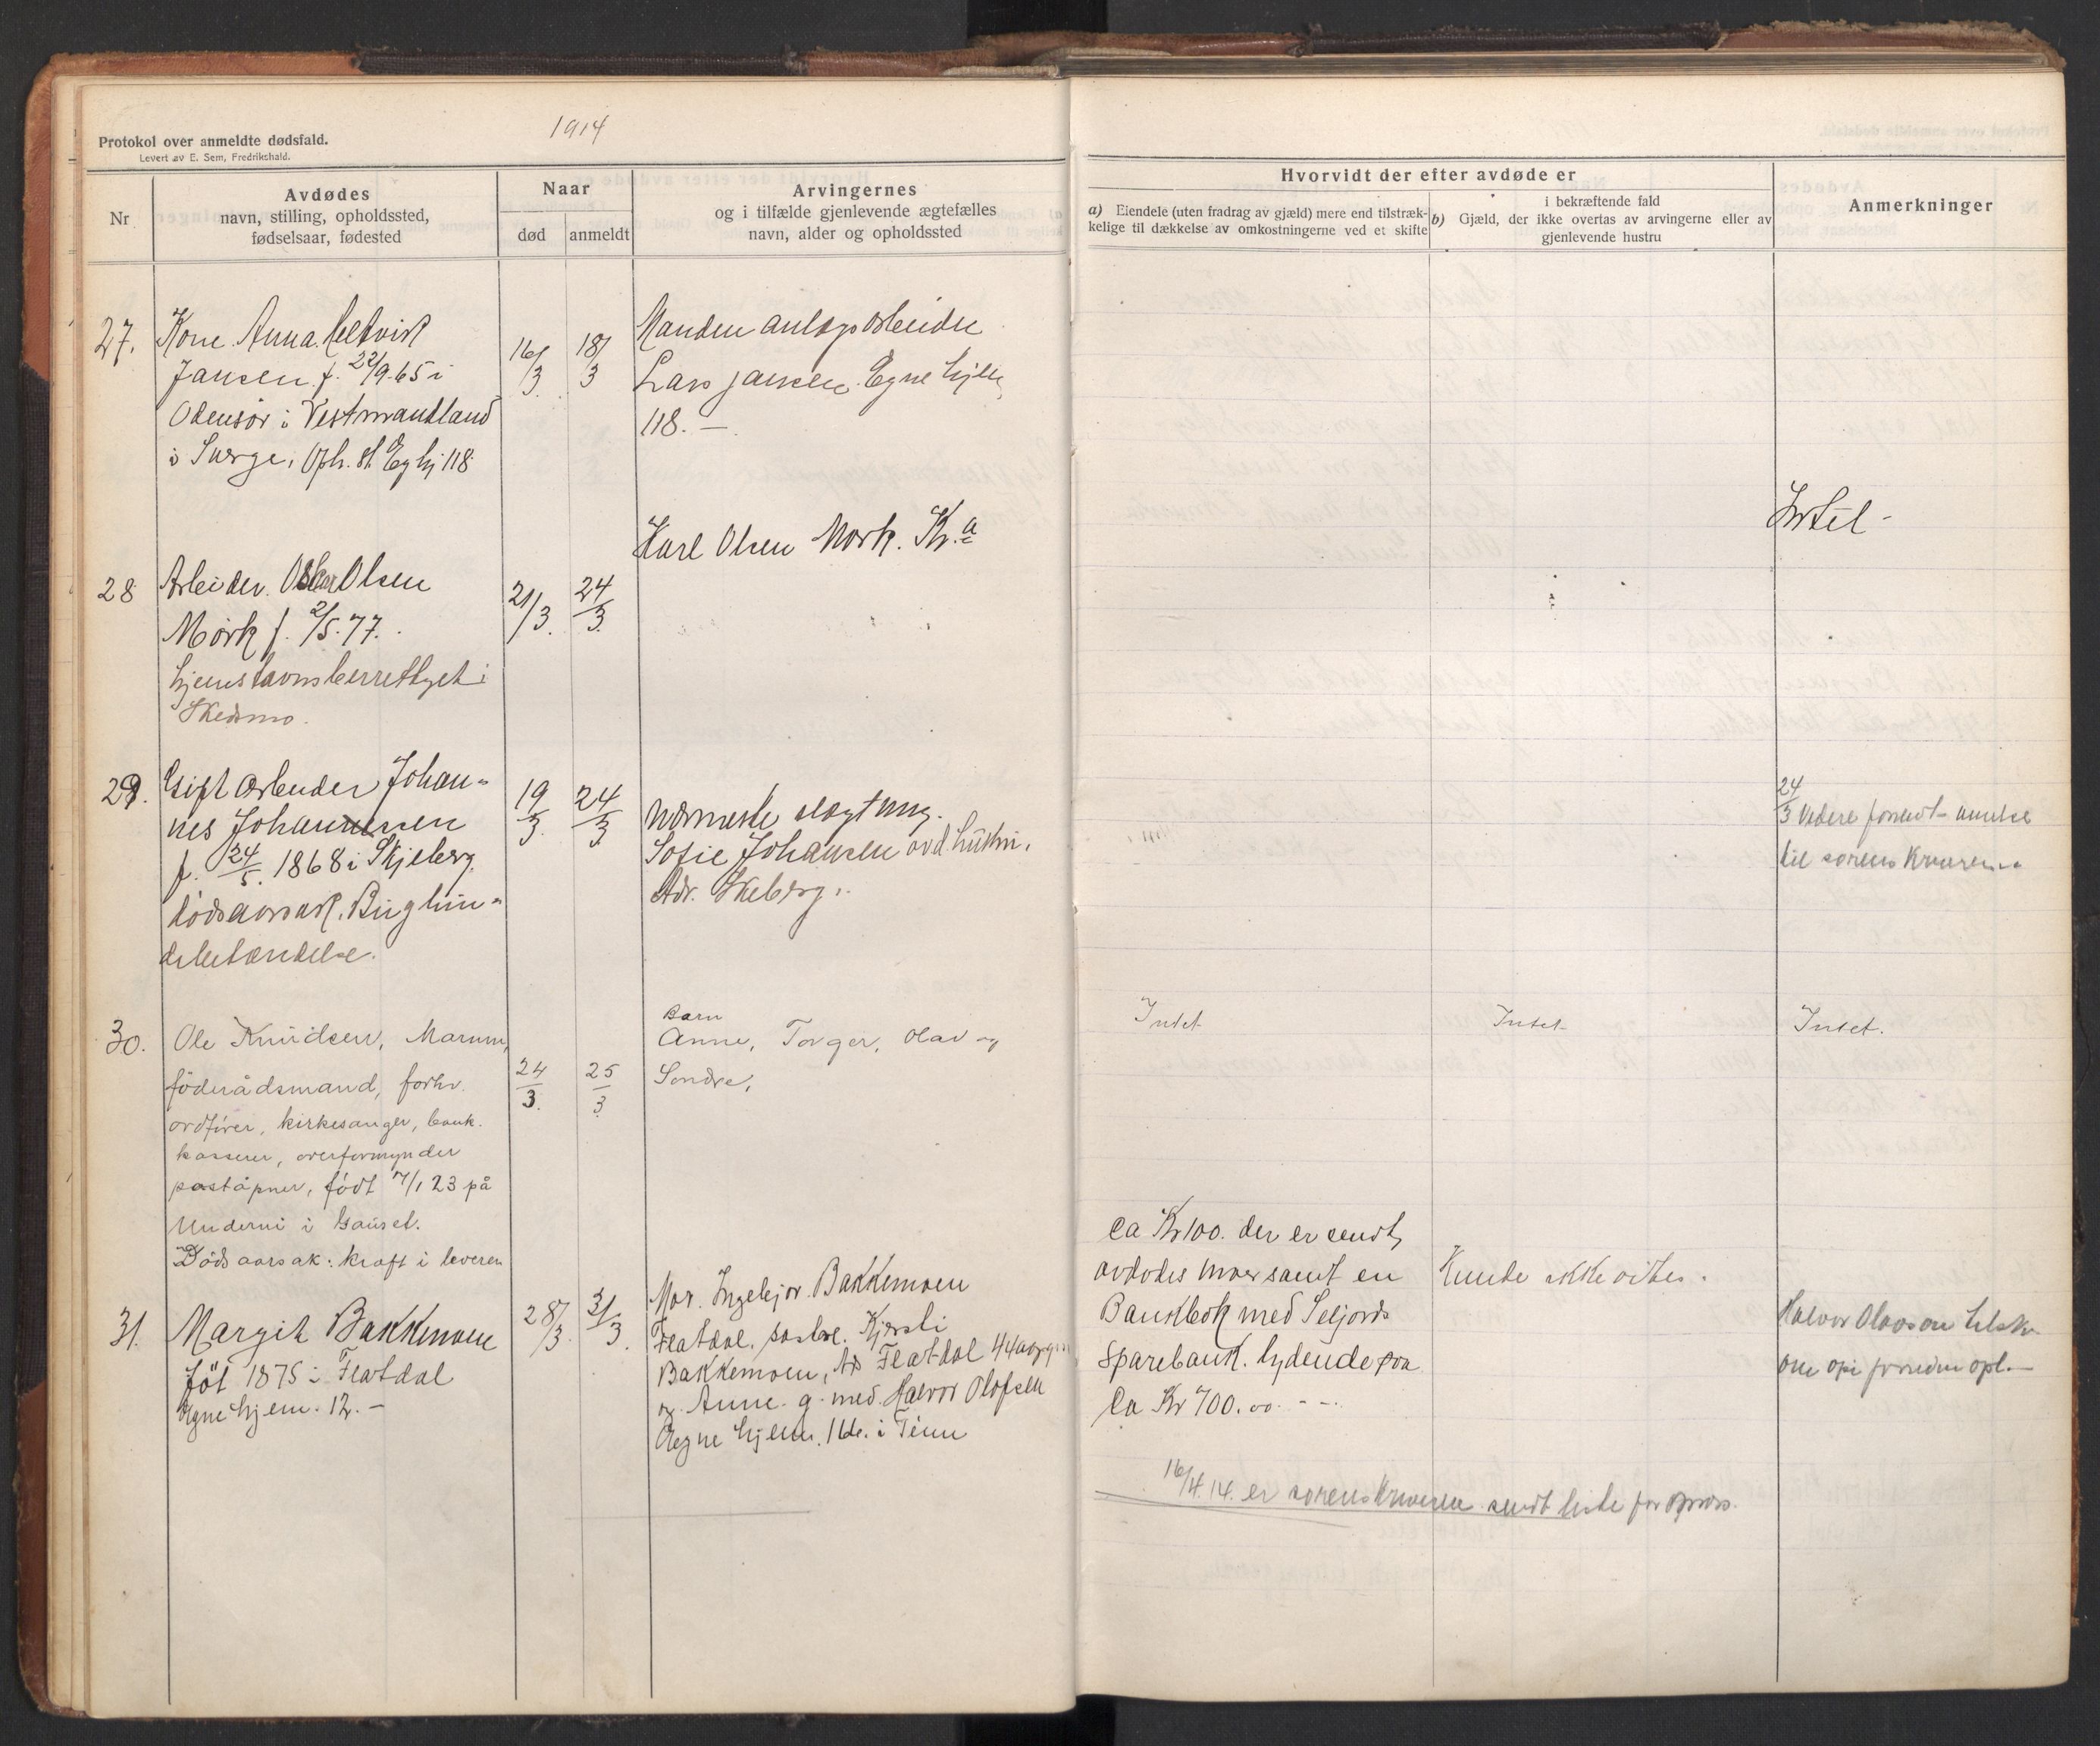 1914
Protokol over anmeldte dødsfald.
Levert av E. Sem, Fredrikshald.
Nr
Avdødes
navn, stilling, opholdssted,
fødselsaar, fødested
Naar
død
anmeldt
Arvingernes
og i tilfælde gjenlevende ægtefælles
navn, alder og opholdssted
Hvorvidt der efter avdøde er
a) Eiendele (uten fradrag av gjæld) mere end tilstræk-
kelige til dækkelse av omkostningerne ved et skifte
i bekræftende fald
b) Gjæld, der ikke overtas av arvingerne eller av
gjenlevende hustru
Anmerkninger
27.
Kone Anna
Jansen f. 22/9-65 i
Odensør i Vestmanland
i Sverge, Oph. st. Eg hj 118
16/3.
18/3
Manden anlægsarbeider
Lars Jansen. Egne hjem
118. —
28
Arbeider. Oskar Olsen
Mörk f. 2/5. 77.
hjemstavnsberrettyet i
Skedsmo.
21/3.
24/3.
Karl Olsen Mork. Kr.a
Intet -
29.
Gift arbeider Johan-
nes Johannessen
f. 24/5. 1868 i Skjeberg.
dødsaarsak. Brughin-
debetændelse.
19/3.
24/3
nærmeste slægtning.
Sofie Johansen avd. hustru.
Adr. Skeberg.
24/3 videre
til sorenskriveren
30.
Ole Knudsen, Marum,
föderådsmand, forhv.
ordfører, kirkesanger, bank.
kasserer, overformynder
poståpner, født 7/1 23 på
Underni i Gausel.
Dødsaarsak: kraft i leveren
24/3.
25/3
Barn
Anne, Torger, Olav og
Sondre,
Intet
Intet
Intet.
31.
Margit Bakkemoen
föt 1875 i Flatdal
Egne hjem. 12. –
28/3.
31/3.
Mor. Ingebjor Bakkemoen
Flatdal. søstre. Kjersti
Bakkemoen, Ad Flatdal 44
og Anne. g. med Halvor Olofsen
Egne hjem. 16 i Tinn
Ca Kr 100. der er sendt
avdødes moer samt en
Bankbok med Seljords
Sparebank. lydende paa
Ca Kr 700.00. - -.
Kunde ikke vites.
Halvor Olavson
opl. —
16/4. 14. er sorenskriveren sendt liste for mars.